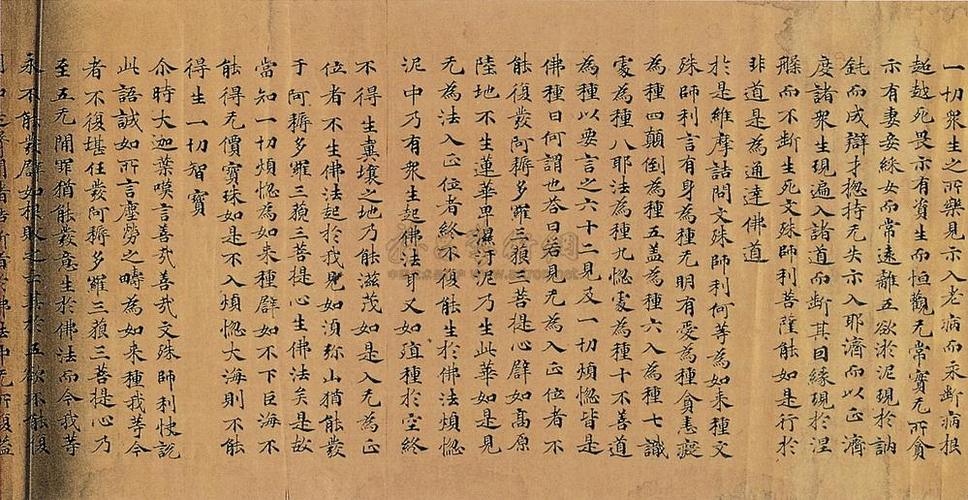 一切衆生之所樂見示入老病而永斷病根
超越死畏示有資生而恒觀无常實无所貪
示有妻妾婇女而常遠離五欲淤泥現於訥
鈍而成辯才揔持无失示入耶濟而以正濟
度諸衆生現遍入諸道而斷其因緣現於涅
槃而不斷生死文殊師利菩薩能如是行於
非道是為通達佛道
於是維摩詰問文殊師利何等為如来種文
殊師利言有身為種无明有愛為種貪恚癡
為種四顛倒為種五盖為種六入為種七識
處為種八耶法為種九惱處為種十不善道
為種以要言之六十二見及一切煩惱皆是
佛種曰何謂也答曰若見无為入正位者不
能復發阿耨多羅三藐三菩提心譬如高原
陸地不生蓮華卑濕汙泥乃生此華如是見
无為法入正位者終不復能生於佛法煩惱
泥中乃有衆生起佛法耳又如殖種於空終
不得生糞壤之地乃能滋茂如是入无為正
位者不生佛法起於我見如須弥山猶能發
于阿耨多羅三藐三菩提心生佛法矣是故
當知一切煩惱為如来種譬如不下巨海不
能得无價寶珠如是不入煩惱大海則不能
得生一切智寶
尒時大迦葉嘆言善哉善哉文殊師利快說
此語誠如所言塵勞之疇為如来種我等今
者不復堪任發阿耨多羅三藐三菩提心乃
至五无間罪猶能發意生於佛法而今我等
永不能發譬如根敗之士其於五欲不能復